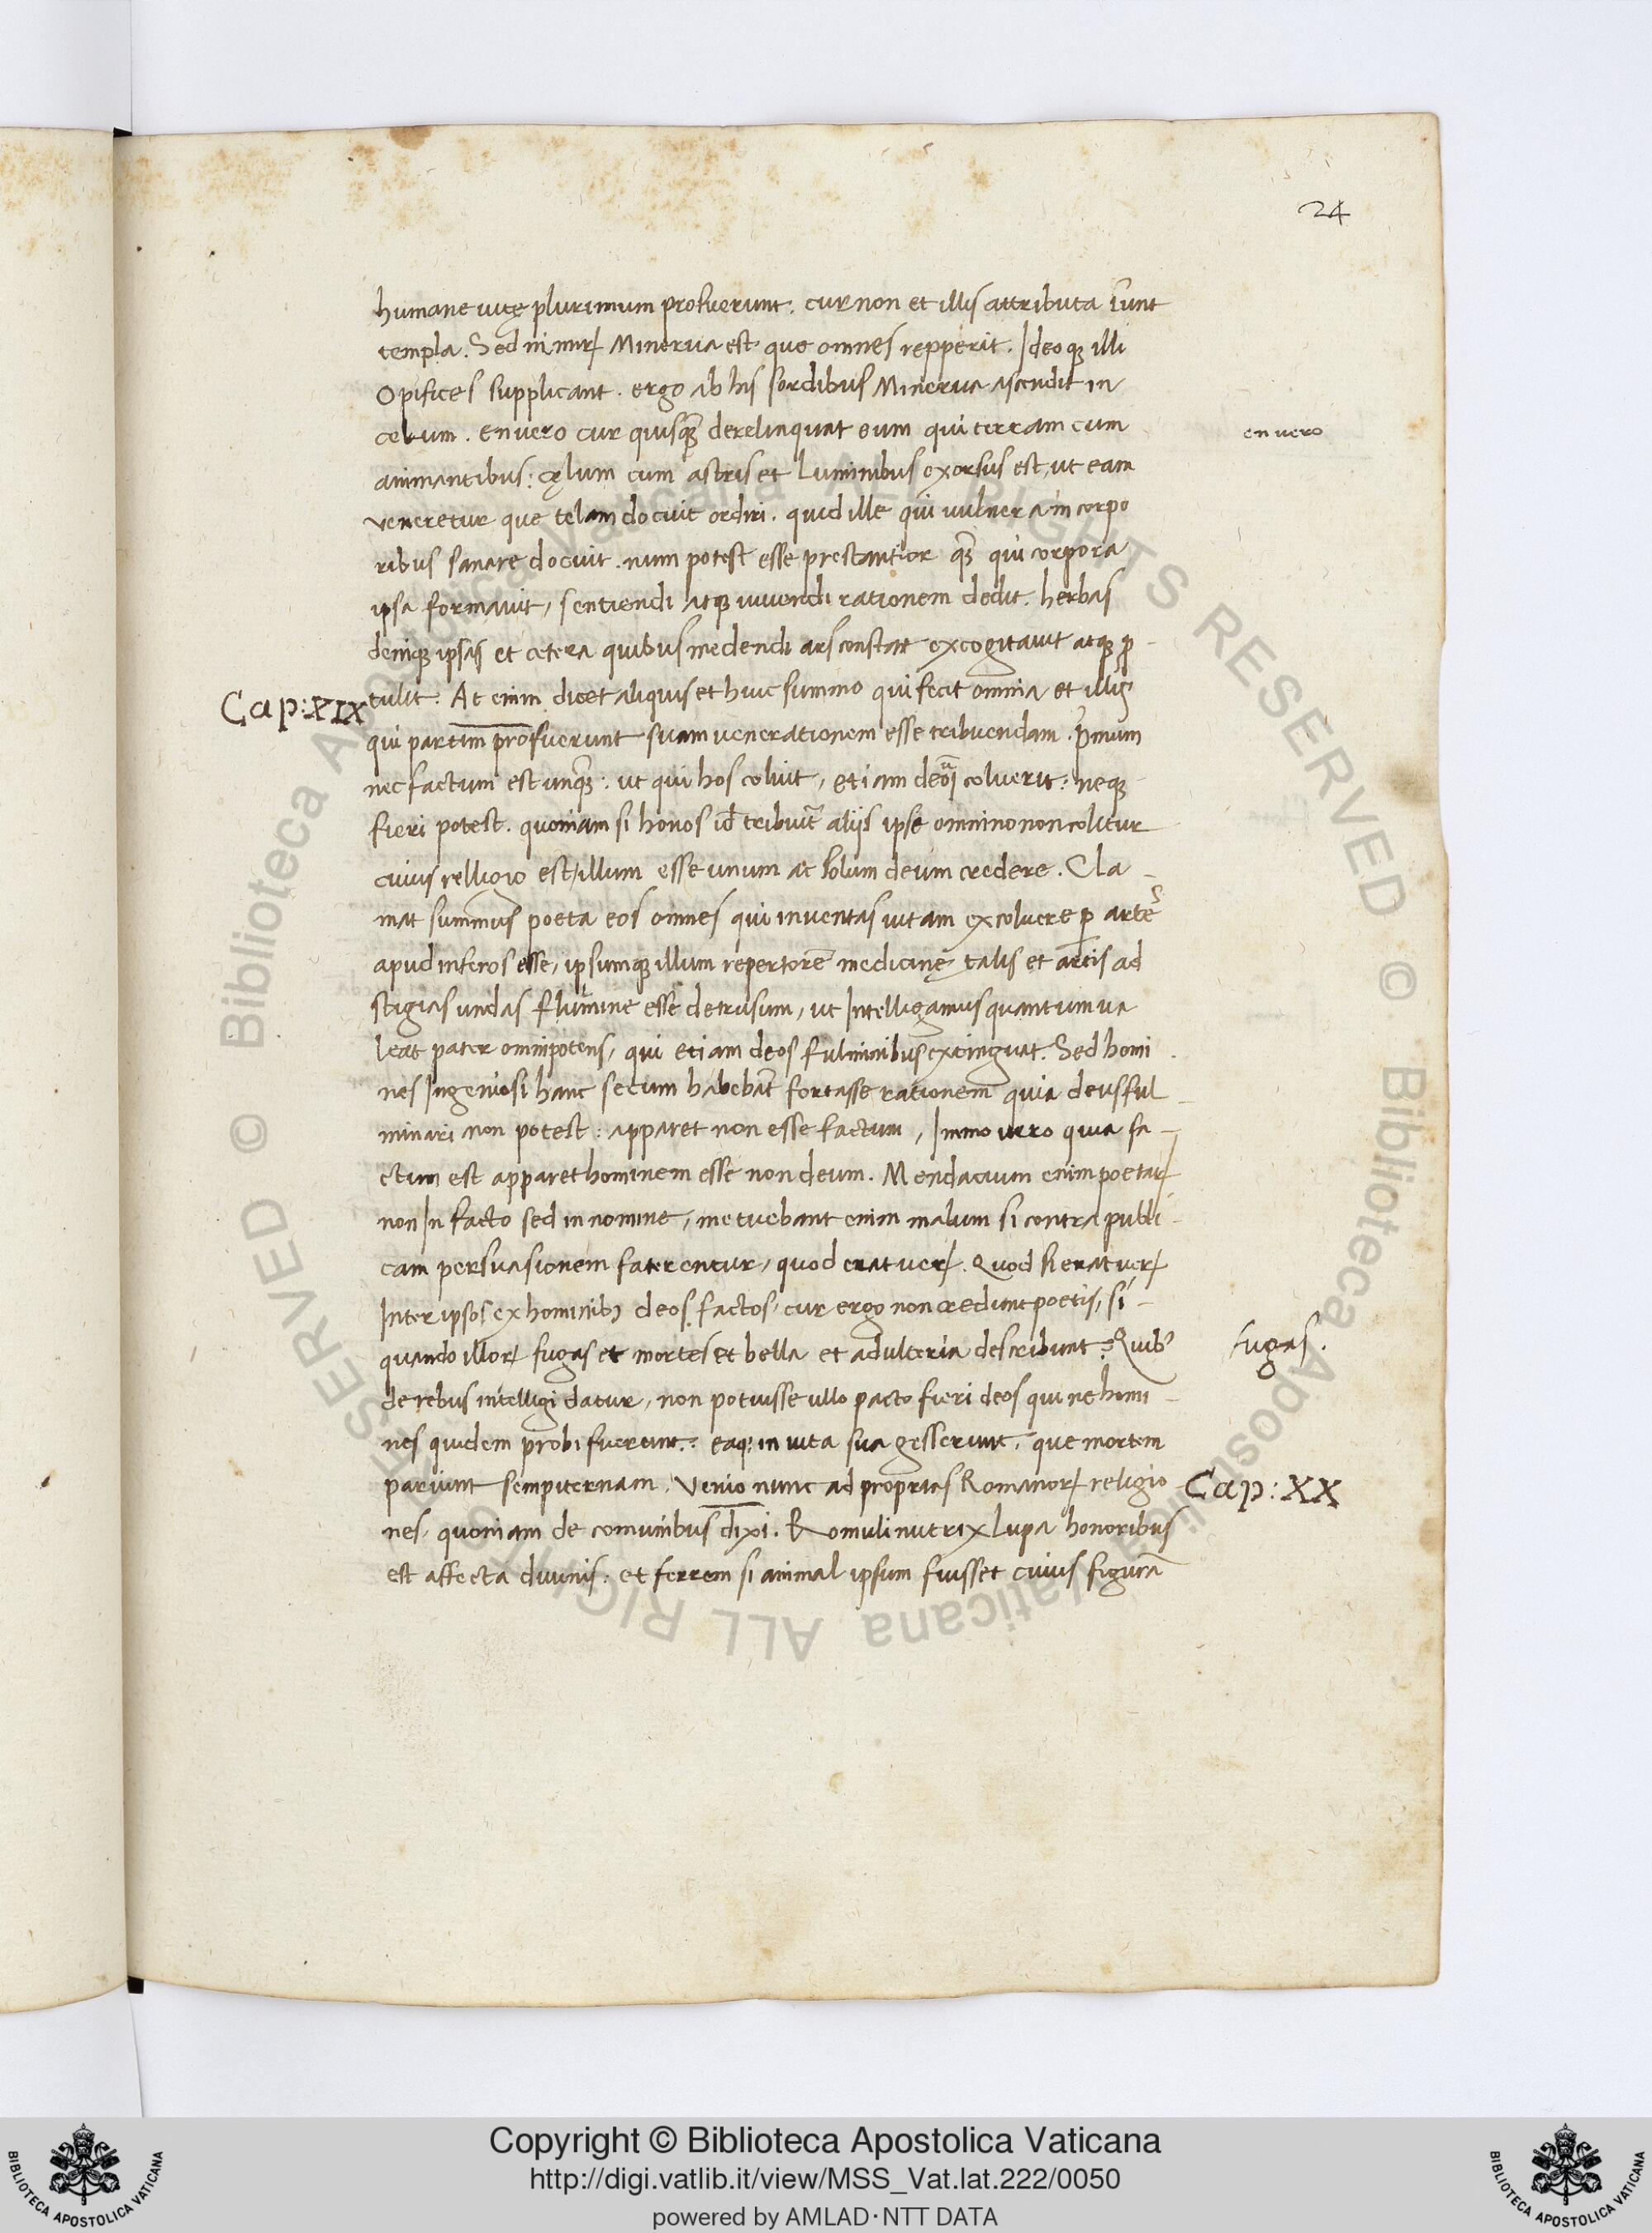 24
humane uitę plurimum profuerunt. cur non et illis attributa sunt
templa. Sed nimirꝝ Minerua est que omnes repperit. Ideoqꝫ illi
opifices supplicant. ergo ab his sordibus Minerua ascendit in
celum. en uero cur quisqꝫ̃ derelinquat eum qui terram cum
en uero
animantibus: cęlum cum astris et luminibus exorsus est, ut eam
veneretur que telam docuit ordiri. quid ille qui uulnera in corpo
ribus sanare docuit. num potest esse prestantior qꝫ̃ qui corpora
ipsa formauit, sentiendi atqꝫ uiuendi rationem dedit. herbas
deniqꝫ ipsas et cetera quibus medendi ars constat excogitauit atqꝫ ꝓ-
Cap: XIX
tulit. At enim dicet aliquis et huic summo qui fecit omnia et illis
qui partim profuerunt suam uenerationem esse tribuendam. P̃mum
nec factum est unqꝫ̃: ut qui hos coluit, etiam deum coluerit: neqꝫ
fieri potest. quoniam si honos id̃ tribuit̃ alijs ipse omnino non colitur
cuius relligio est, illum esse unum ac solum deum credere. Cla-
mat summus poeta eos omnes qui inuentas uitam excoluere ꝑ artẽs
apud inferos esse, ipsumqꝫ illum repertorẽ medicinę talis et artis ad
stigias undas flumine esse detrusum, ut Intelligamus quantum ua
leat pater omnipotens, qui etiam deos fulminibus extinguat. Sed homi
nes Ingeniosi hanc secum habebãt fortasse rationem quia deus ful-
minari non potest: apparet non esse factum, Immo uero quia fa-
ctum est apparet hominem esse non deum. Mendacium enim poetaꝝ
non In facto sed in nomine, metuebant enim malum si contra publi-
cam persuasionem faterentur, quod erat ueꝝ. Quod si erat ueꝝ
Inter ipsos ex hominibꝫ deos factos, cur ergo non credunt poetis, si-
quando illoꝝ fugas et mortes et bella et adulteria describunt? Quibꝰ
fugas.
de rebus intelligi datur, non potuisse ullo pacto fieri deos qui ne homi-
nes quidem probi fuerunt: eaqꝫ in uita sua gesserunt, que mortem
pariunt sempiternam. Venio nunc ad proprias Romanoꝝ religio
Cap: XX
nes, quoniam de comunibus dixi. Romuli nutrix Lupa honoribus
est affecta diuinis: et ferrem si animal ipsum fuisset cuius figurã
Copyright © Biblioteca Apostolica Vaticana
http://digi.vatlib.it/view/MSS_Vat.lat.222/0050
powered by AMLAD·NTT DATA